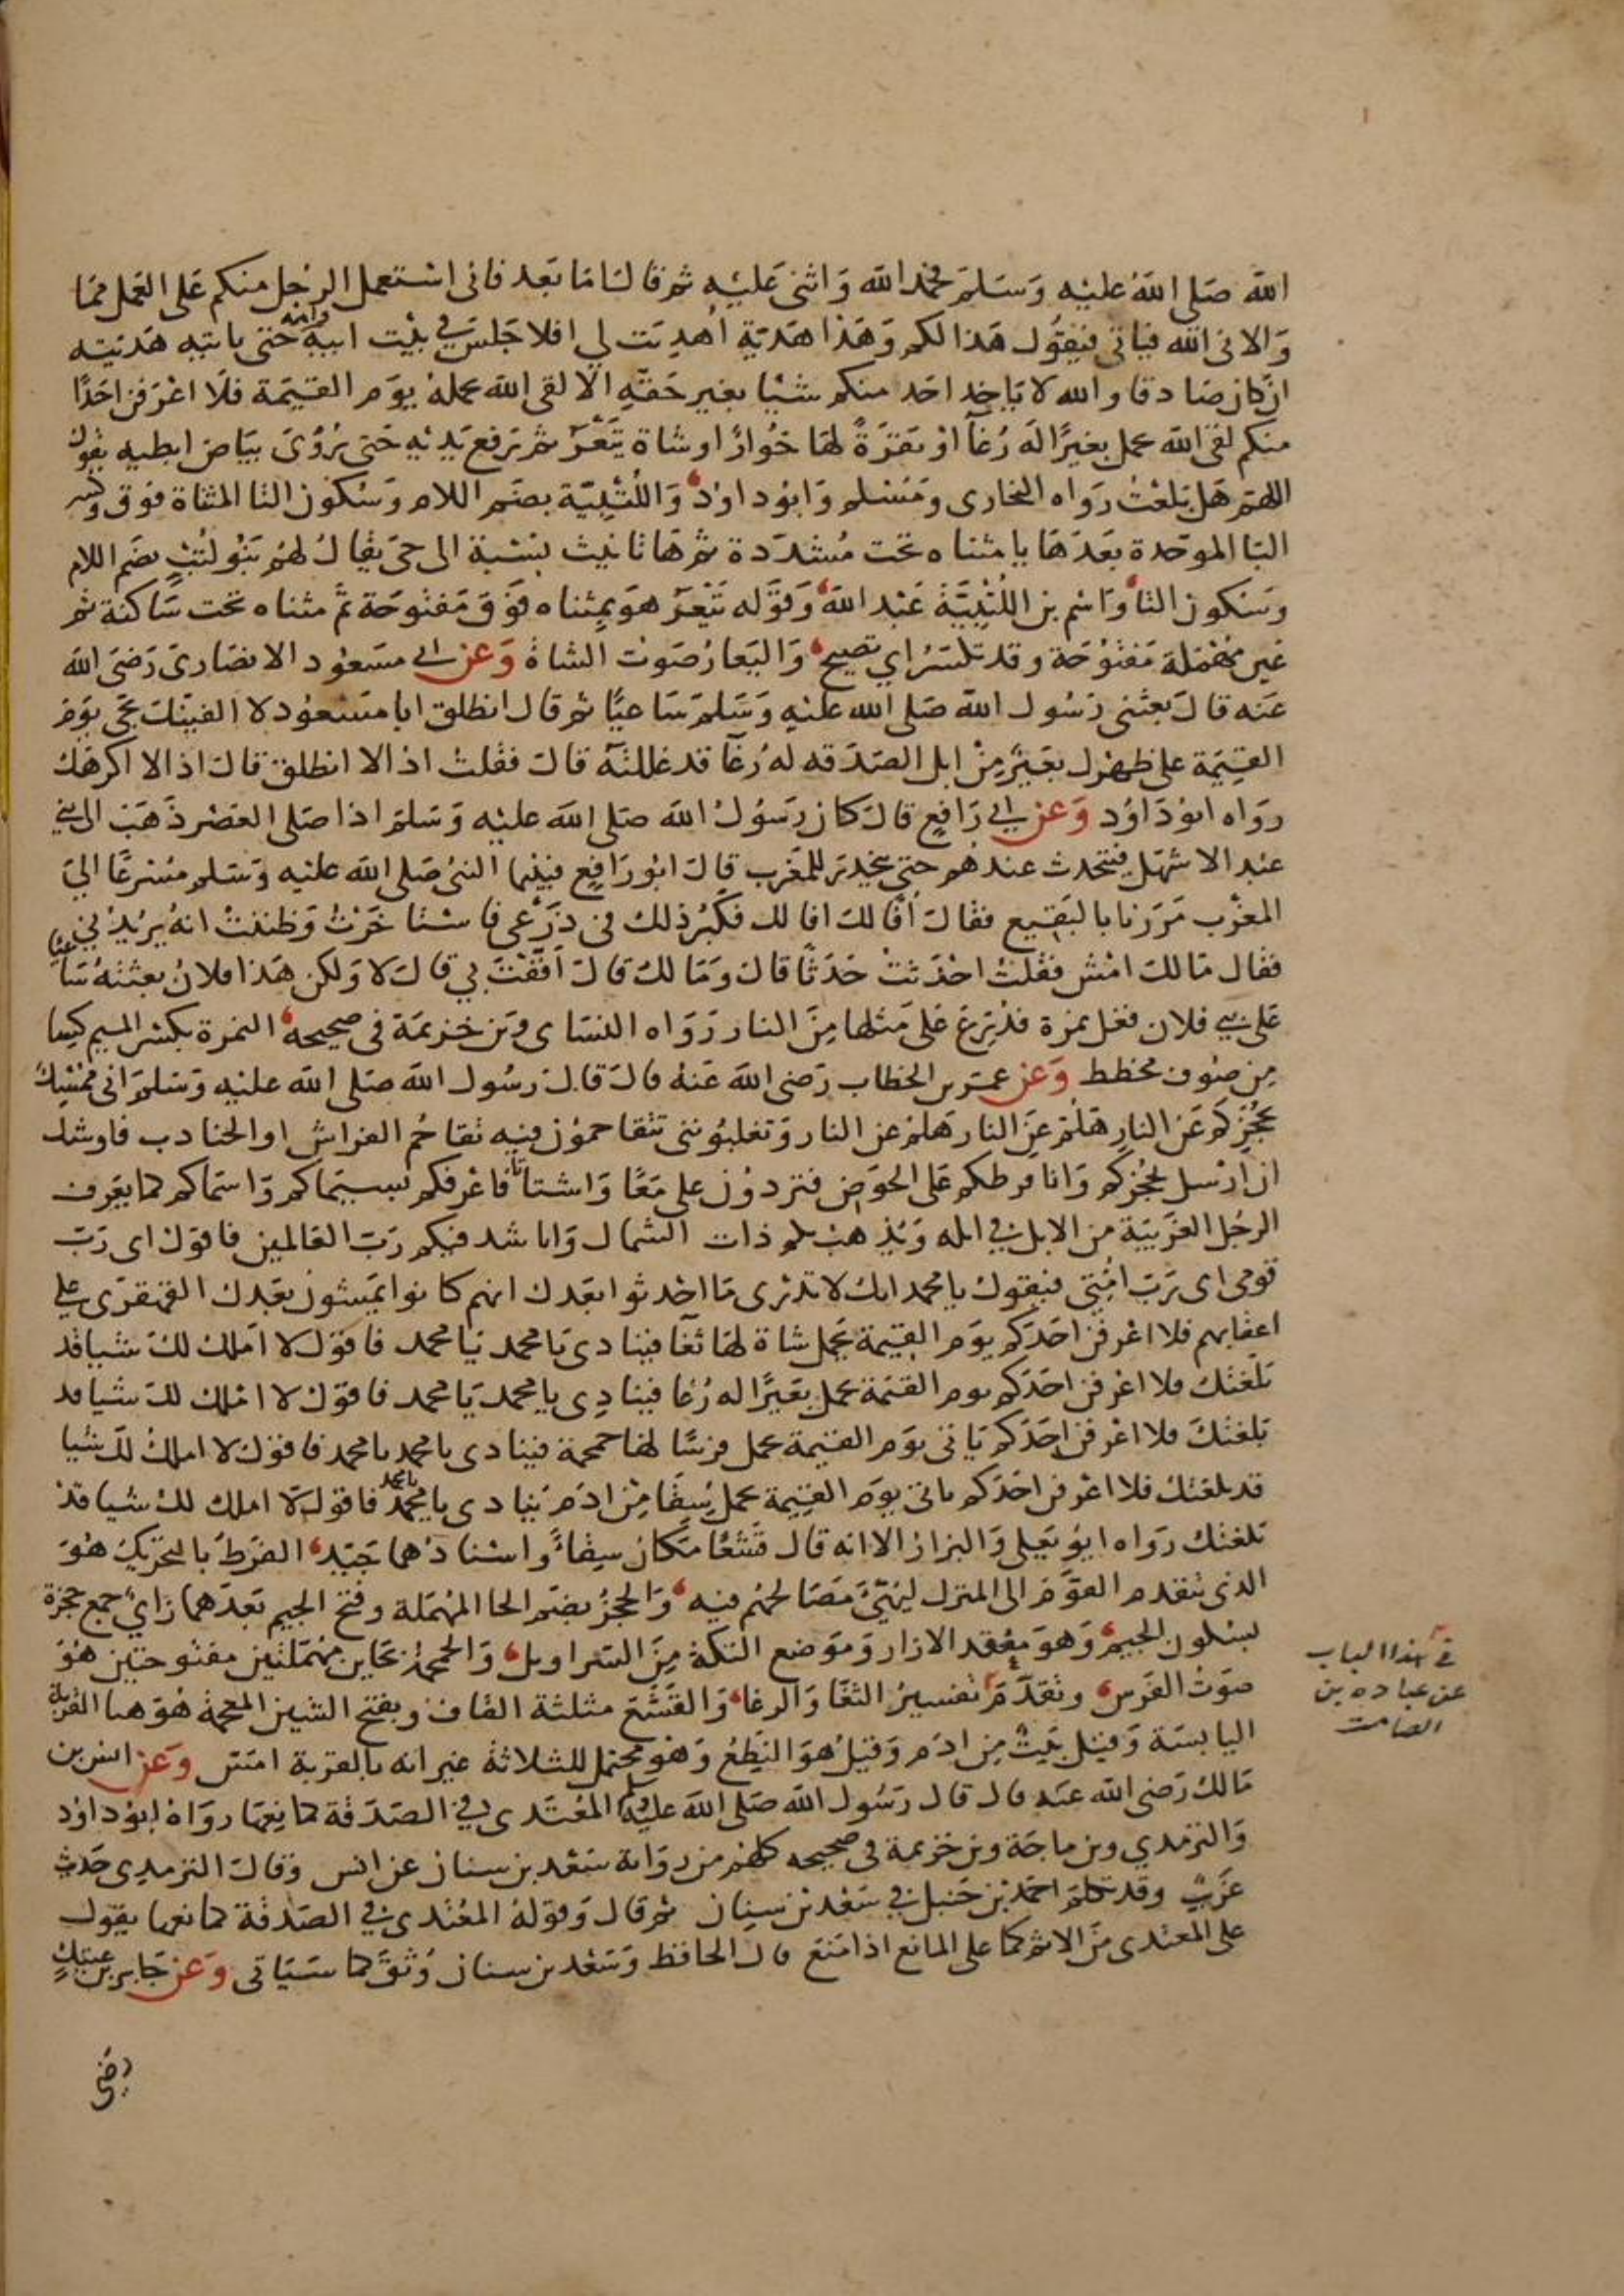 الله صَلى اللهُ عليْه وَسَلمَ فحمد الله وَاثنى عَليْه ثم قال امَا بَعد فانى اسْتعمل الرجُل منكم عَلى العَمل ممَا
وَلانى الله فياتى فيَقوُل هَذا لكم وَهَذا هَديَة اُهدِيَت لي افلا جَلسَ في بيْت ابيه وامه حَتى ياتيه هَديَته
ان كان صَادقا والله لا يَاخذ احَد منكم شيْا بغير حَقهِ الا لقى الله يحمله يوَم القيَمة فلَا اعْرفن احَدًا
منكم لقى الله يحمل بعيرًا لَه رُغآ اوْ بَقرَةً لهَا خُوارٌ او شاة تَيْعَرُ ثم رَفع يَديْه حَتى رُؤىَ بيَاض ابطيه يقول
اللهمَ هَل بَلغتُ رَواه البخارى وَمُسْلم وَابوُ داوُد وَاللُتْبيَّة بضَم اللام وَسُكون التا المثناة فوَق وكسر
البَا الموحَدة بعَدَهَا يا مثناه تحت مُشدَدة ثم هَا تانيث نسْبَة الى حىّ يقال لهُم بَنوُ لُتْب بضَم اللام
وَسَكون التا وَاسْم بن اللُتْبيَّة عَبْد الله وَقوَله تَيْعَرُ هوَ بمِثناه فوَق مَفتوُحَة ثمَّ مثناه تحت سَاكنة ثم
عَين مُهْملة مَفتوُحَة وقد تكسَرُ اي تصيح وَاليَعَارُ صَوت الشاة وَعَن ابي مسَعوُد الانصَارىّ رَضىَ الله
عَنه قال بَعثنى رَسُول الله صَلى الله عليْه وَسَلم سَاعيًا ثم قال انطلق ابا مسَعوُد لا الفيَنكَ تجَى يوَم
القيَمة على ظهْرك بعَيرٌ مِنْ ابل الصَدَقه له رُغآ قد غللتَه قال فقلت اذا لا انطلق قال اذا لا اكرهَك
روَاه ابوُ دَاوُد وَعَن ابي رَافِع قالَ كان رَسُولُ الله صَلى الله عليْه وَسَلم اذا صَلى العَصْر ذَهَبَ الى بني
عبْد الاشهَل فيتحدث عندهم حتى ينحدرَ للمغَرب قال ابوُ رَافِع فبيْنما النبىُ صَلى الله عليْه وَسَلم مُسْرعًا الىَ
المغرْب مَرَرنا بالبَقيع فقال اُفًا لكَ افا لك فكَبُر ذلك فى ذرْعى فاسْتاخَرْتُ وَظننتُ انهُ يريُدُني
فقال مَالكَ امْش فقلتُ احْدَثتَ حَدَثًا قال وَمَا لكَ قال اَفَّفْتَ بي قال لا وَلكن هَذا فلانُ بعثتهُ سَاعيًا
عَلى بني فلان فغل نمرة فدُرّعَ عَلى مَثلها مِنَ النار رَوَاه النسَاى وَبن خزيمَة فى صحيحه النمرة بكسْر الميم كسِا
مِن صُوف مخطط وَعَن عمَر بن الخطاب رَضى الله عَنهُ قال قال رسُول الله صلى الله عليْه وَسَلمَ انى ممُسْك
بحُجزكم عَن النار هَلمَ عَن النار هَلمَ عن النار وَتغلبُوننى تتقاحموُن فيْه تقاحُم الفراش او الجنادب فاوشك
ان ارْسل بحُجزكم وَانا فرطكم عَلى الحوَض فتردوُن على معًا وَاشتاتا فاعْرفكم بسيمَاكم وَاسْماكم كما يعَرف
الرجُل الغَريَبة من الابل في ابله وَيذهَبُ بكم ذات الشمال وَاناشد فيكم رَبَ العَالمين فاقوَل اى رَبّ
قومى اى رَبّ امُتى فيَقول يا محمد انك لا تدْرى مَا احْدثوا بعَدك انهم كانوا يمَشون بعَدك القهقرَى على
اعقابهم فلا اعْرفن احَدَكم يوَم القيَمة يحمل شاة لهَا ثغآ فينادى يَا محمد يَا محمد فاقوَل لا اَملك لكَ شيْا قد
بَلغتك فلا اعْرفن احَدَكم يوم القيَمة يحمل بعَيرًا له رُغا فينادِى يا محمد يَا محمد فاقوَل لا امْلك لكَ شيْا قد
بَلغتك فلا اعْرفن احَدَكم يَاتى يوَم القيَمة يحمل فرسًا لها حمحمة فينادى يا محمد يا محمد فاقوَل لا املك لكَ شيْا
قد بلغتك فلا اعْرفن احَدَكم ياتى يوَم القيَمة يحمل سِقَا مِنْ ادَم يُنادى يا محمد يا محمد فاقول لا املك لك شيا قدْ
بَلغتك رَواه ابوُ يَعلى وَالبزار الا انه قال قَشَعًا مَكان سِقاءً واسْنادُهما جَيّد الفَرَط بالتحريك هوَ
الذى يتقدم القوَم الى المنزل ليهَيّئ مَصَالحُهم فيه وَالحجَزُ بضَم الحا المهُمَلة وفتح الجيم بَعدَهما زَايٌ جمع حُجزة
بسكون الجيم وَهوَ مَعْقد الازار وَموَضع التكة مِنَ السَراويل وَالحمحمة بحَاين مهُمَلتين مفتوحتين هُوَ
صوَتُ الفَرس وتقدَّمَ تفسيرُ الثغَا وَالرغا وَالقشَع مثلثة القاف وبفتح الشين المعجمة هُوَ هنا القربة
اليابسَة وَقيْل بَيتٌ مِن ادَم وَقيلُ هوَ النِطعُ وَهوَ محتمل للثلاثة غير انه بالقربة امَسّ وَعَن انس بن
مَالك رَضى الله عنه قال قال رَسُول الله صَلى الله عليْه وسلم المعُتدى في الصَدَقة كما نِعهَا روَاه ابوُ داوُد
وَالترمدي وبن ماجَة وبن خزيمة فى صحيحه كلهم من روَاية سَعْد بن سنان عن انس وَقال الترمدى حَديث
غَريبٌ وقد تكلمَ احمَد بن حَنبل في سَعْد بن سِنان ثم قال وَقوَلهُ المعُتدى في الصَدَقة كما نعها يقول
على المعتدى مَن الاثم كما على المانع اذا مَنَع قال الحافظ وَسَعْد بن سنان وُثقَ كما سَيَاتى وَعَن جَابر بن عتيك
رضى
في هذا الباب
عن عباده بن
الصامت